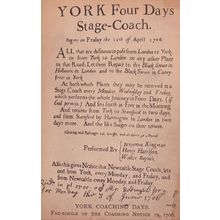 YORK Four Days
Stage-Coach.
Begins on Friday the 12th of April 1706.
ALL that are desirous to pass from London to York,
or from York to London or any other Place
on that Road; Let them Repair to the Black Swan in
Holbourn in London and to the Black Swan in Coney-
street in York
At both which Places they may be received in a
Stage Coach every Monday, Wednesday and Friday,
which performs the whole Journey in Four Days, (if
God permits.) And sets forth at Five in the Morning.
And returns from York to Stamford in two days,
and from Stamford by Huntington to London in two
days more. And the like Stages on their return.
Allowing each Passenger 14l. weight, and all above 3d. a Pound.
Performed By
Benjamin Kingman,
Henry Harrison,
Walter Bayne's,
Also this gives Notice that Newcastle Stage Coach, sets
out from York, every Monday, and Friday, and
from Newcastle every Monday, and Friday.
of June 1706
YORK COACHING DAYS.
FAC-SIMILE OF THE COACHING NOTICE IN 1706.